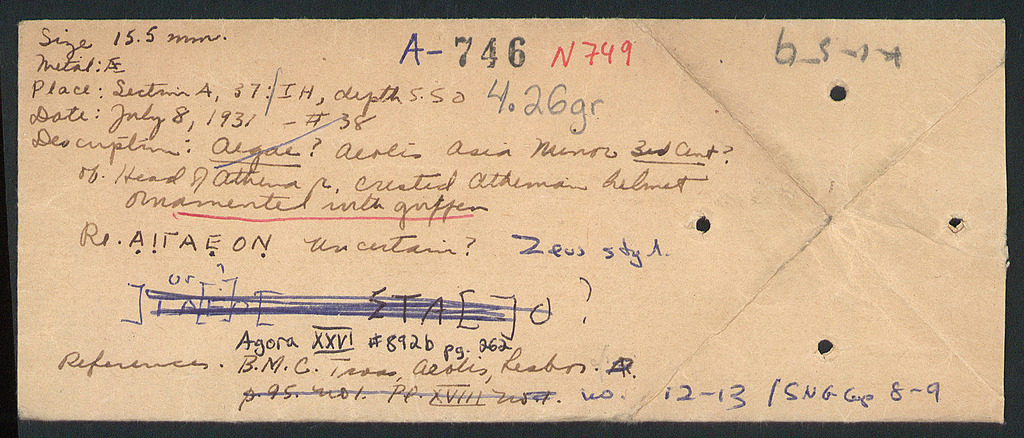 Size 15.5 mm. A-746 N749
Metal: Æ
Place: Section A, 37/IH, depth 5.50 4.26gr
Date: July 8, 1931 - # 38
Description: Aegae? Aeolis Asia Minor 3rd Cent?
Ob. Head of Athena r. crested Athenian helmet
ornamented with griffen
Re. AIΓAEON Uncertain? Zeus stg l.
or ?
ΣTA[ ] ?
Agora XXVI #892b pg. 262
References. B.M.C. Troas, Aeolis, Lesbos.
p.95. no1. Pl. XVIII no. 12-13 / SNG Cop 8-9